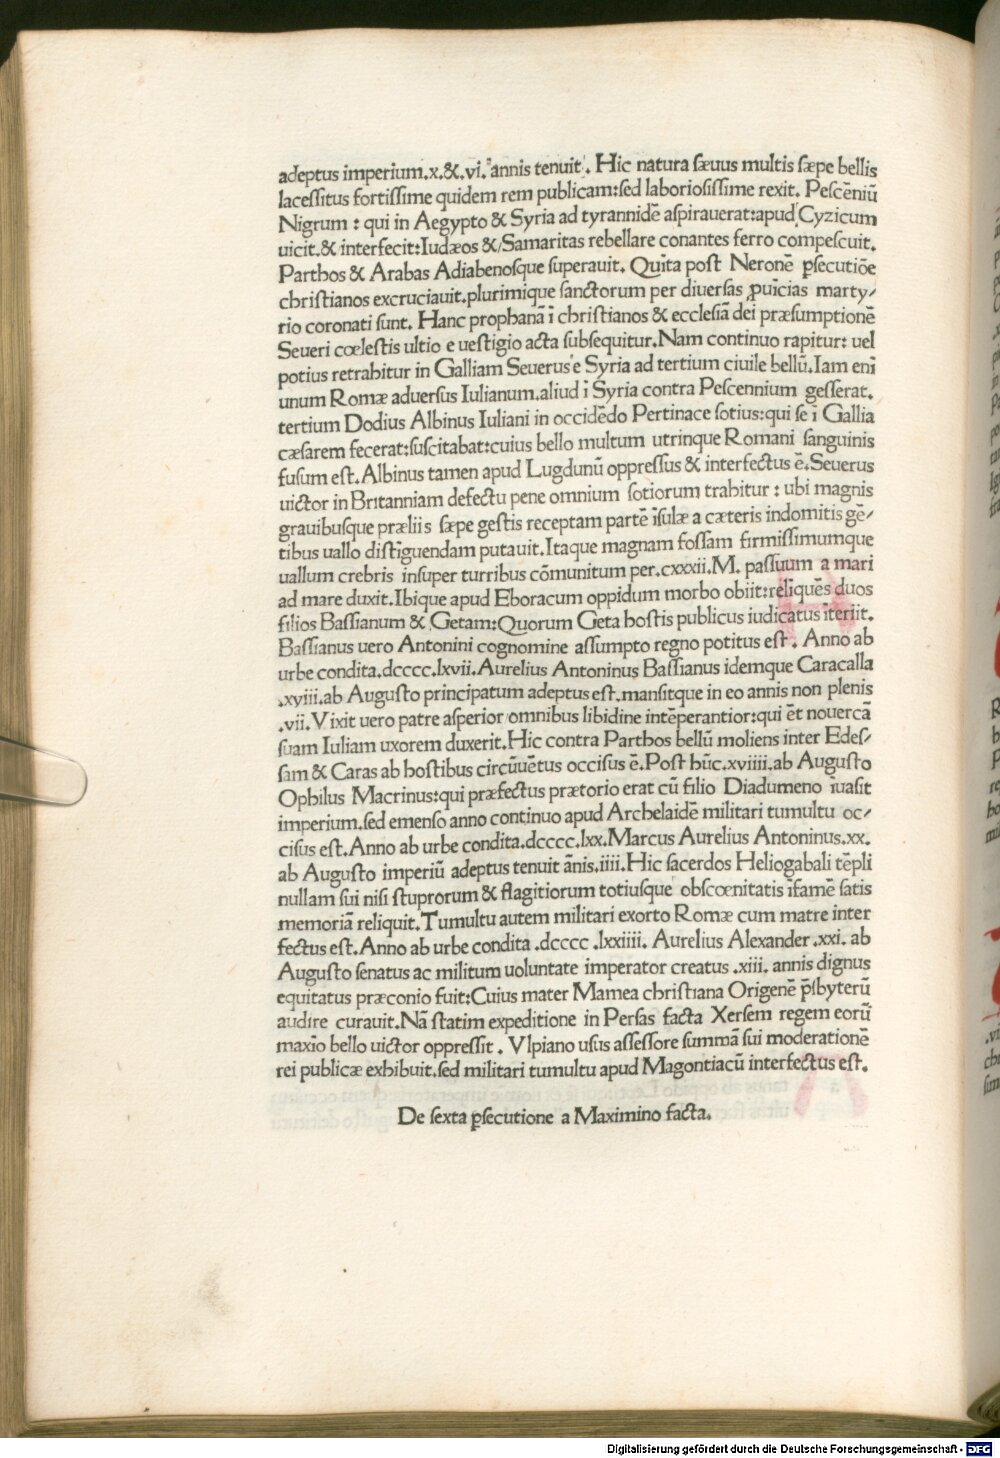 adeptus imperium.x.&.vi. annis tenuit. Hic natura sæuus multis sæpe bellis
lacessitus fortissime quidem rem publicam:sed laboriosissime rexit. Pescēniū
Nigrum : qui in Aegypto & Syria ad tyrannidē aspirauerat:apud Cyzicum
uicit.& interfecit:Iudæos & Samaritas rebellare conantes ferro compescuit.
Parthos & Arabas Adiabenosque superauit. Quīta post Neronē ꝑsecutiōe
christianos excruciauit.plurimique sanctorum per diuersas ꝓuīcias marty/
rio coronati sunt. Hanc prophanā ī christianos & ecclesiā dei præsumptionē
Seueri cœlestis ultio e uestigio acta subsequitur.Nam continuo rapitur: uel
potius retrahitur in Galliam Seuerus e Syria ad tertium ciuile bellū.Iam enī
unum Romæ aduersus Iulianum.aliud ī Syria contra Pescennium gesserat.
tertium Dodius Albinus Iuliani in occidēdo Pertinace sotius:qui se ī Gallia
cæsarem fecerat:suscitabat:cuius bello multum utrinque Romani sanguinis
fusum est.Albinus tamen apud Lugdunū oppressus & interfectus ē.Seuerus
uictor in Britanniam defectu pene omnium sotiorum trahitur : ubi magnis
grauibusque præliis sæpe gestis receptam partē īsulæ a cæteris indomitis gē/
tibus uallo distīguendam putauit.Itaque magnam fossam firmissimumque
uallum crebris insuper turribus cōmunitum per.cxxxii.M. passuum a mari
ad mare duxit.Ibique apud Eboracum oppidum morbo obiit:reliquēs duos
filios Bassianum & Getam:Quorum Geta hostis publicus iudicatus īteriit.
Bassianus uero Antonini cognomine assumpto regno potitus est. Anno ab
urbe condita.dcccc.lxvii.Aurelius Antoninus Bassianus idemque Caracalla
.xviii.ab Augusto principatum adeptus est.mansitque in eo annis non plenis
.vii.Vixit uero patre asperior omnibus libidine intēperantior:qui ēt nouercā
suam Iuliam uxorem duxerit.Hic contra Parthos bellū moliens inter Edes/
sam & Caras ab hostibus circūuētus occisus ē.Post hūc.xviiii.ab Augusto
Ophilus Macrinus:qui præfectus prætorio erat cū filio Diadumeno īuasit
imperium.sed emenso anno continuo apud Archelaidē militari tumultu oc/
cisus est.Anno ab urbe condita.dcccc.lxx.Marcus Aurelius Antoninus.xx.
ab Augusto imperiū adeptus tenuit ānis.iiii.Hic sacerdos Heliogabali tēpli
nullam sui nisi stuprorum & flagitiorum totiusque obscœnitatis īfamē satis
memoriā reliquit.Tumultu autem militari exorto Romæ cum matre inter
fectus est.Anno ab urbe condita .dcccc .lxxiiii. Aurelius Alexander .xxi. ab
Augusto senatus ac militum uoluntate imperator creatus .xiii. annis dignus
equitatus præconio fuit:Cuius mater Mamea christiana Origenē p̄sbyterū
audire curauit.Nā statim expeditione in Persas facta Xersem regem eorū
maxīo bello uictor oppressit . Vlpiano usus assessore summā sui moderationē
rei publicæ exhibuit.sed militari tumultu apud Magontiacū interfectus est.
De sexta ꝑsecutione a Maximino facta.
Digitalisierung gefördert durch die Deutsche Forschungsgemeinschaft - DFG